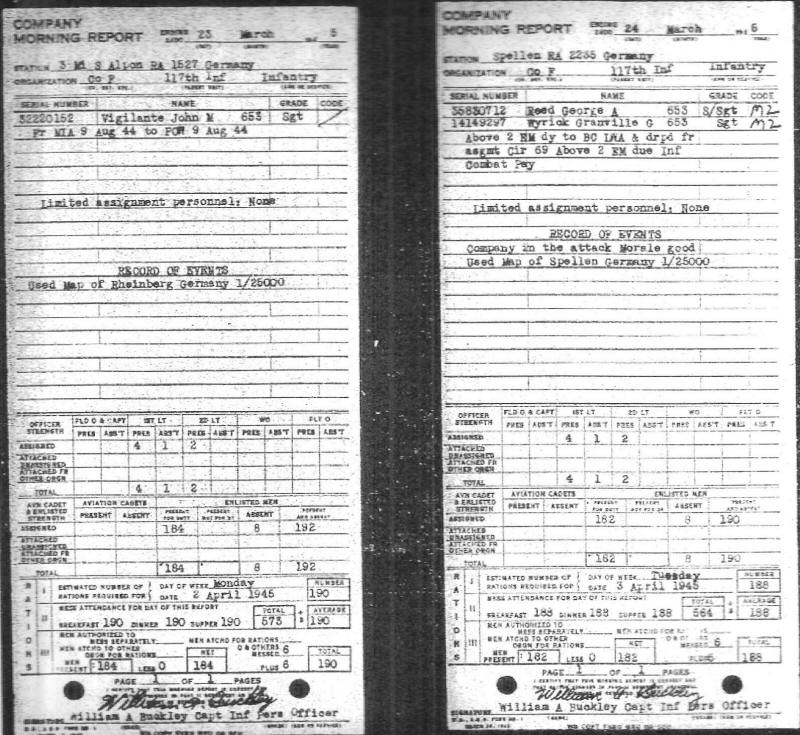 COMPANY
MORNING REPORT ENDING 2400 23 March 194 5
STATION 3 Mi S Alpon RA 1527 Germany
ORGANIZATION Co F 117th Inf Infantry
SERIAL NUMBER NAME GRADE CODE
32220152 Vigilante John M 653 Sgt
Fr MIA 9 Aug 44 to POW 9 Aug 44
Limited assignment personnel: None
RECORD OF EVENTS
Used Map of Rheinberg Germany 1/25000
OFFICER STRENGTH FLD O & CAPT 1ST LT 2D LT WO FLT O
PRES ABS'T PRES ABS'T PRES ABS'T PRES ABS'T PRES ABS'T
ASSIGNED 4 1 2
ATTACHED UNASSIGNED
ATTACHED FR OTHER ORGN
TOTAL 4 1 2
AVN CADET & ENLISTED STRENGTH AVIATION CADETS ENLISTED MEN
PRESENT ABSENT PRESENT FOR DUTY PRESENT NOT FOR DY ABSENT PRESENT AND ABSENT
ASSIGNED 184 8 192
ATTACHED UNASSIGNED
ATTACHED FR OTHER ORGN
TOTAL 184 8 192
RATIONS
I ESTIMATED NUMBER OF RATIONS REQUIRED FOR DAY OF WEEK Monday NUMBER
DATE 2 April 1945 190
II MESS ATTENDANCE FOR DAY OF THIS REPORT TOTAL AVERAGE
BREAKFAST 190 DINNER 190 SUPPER 190 573 ÷ 3 190
III MEN AUTHORIZED TO MESS SEPARATELY MEN ATCHD FOR RATIONS
MEN ATCHD TO OTHER ORGN FOR RATIONS NET O & OTHERS MESSED 6 TOTAL
MEN PRESENT 184 LESS 0 184 PLUS 6 190
PAGE 1 OF 1 PAGES
I CERTIFY THAT THIS MORNING REPORT IS CORRECT
William A Buckley
SIGNATURE William A Buckley Capt Inf Pers Officer
COMPANY
MORNING REPORT ENDING 2400 24 March 194 5
STATION Spellen RA 2235 Germany
ORGANIZATION Co F 117th Inf Infantry
SERIAL NUMBER NAME GRADE CODE
35830712 Reed George A 653 S/Sgt M2
14149297 Wyrick Granville G 653 Sgt M2
Above 2 EM dy to BC LWA & drpd fr
asgmt Cir 69 Above 2 EM due Inf
Combat Pay
Limited assignment personnel: None
RECORD OF EVENTS
Company in the attack Morale good
Used Map of Spellen Germany 1/25000
OFFICER STRENGTH FLD O & CAPT 1ST LT 2D LT WO FLT O
PRES ABS'T PRES ABS'T PRES ABS'T PRES ABS'T PRES ABS'T
ASSIGNED 4 1 2
ATTACHED UNASSIGNED
ATTACHED FR OTHER ORGN
TOTAL 4 1 2
AVN CADET & ENLISTED STRENGTH AVIATION CADETS ENLISTED MEN
PRESENT ABSENT PRESENT FOR DUTY PRESENT NOT FOR DY ABSENT PRESENT AND ABSENT
ASSIGNED 182 8 190
ATTACHED UNASSIGNED
ATTACHED FR OTHER ORGN
TOTAL 182 8 190
RATIONS
I ESTIMATED NUMBER OF RATIONS REQUIRED FOR DAY OF WEEK Tuesday NUMBER
DATE 3 April 1945 188
II MESS ATTENDANCE FOR DAY OF THIS REPORT TOTAL AVERAGE
BREAKFAST 188 DINNER 188 SUPPER 188 564 ÷ 3 188
III MEN AUTHORIZED TO MESS SEPARATELY MEN ATCHD FOR
MEN ATCHD TO OTHER ORGN FOR RATIONS NET MESSED 6 TOTAL
MEN PRESENT 182 LESS 0 182 PLUS 6 188
PAGE 1 OF 1 PAGES
I CERTIFY THAT THIS MORNING REPORT IS CORRECT
William A Buckley
SIGNATURE William A Buckley Capt Inf Pers Officer